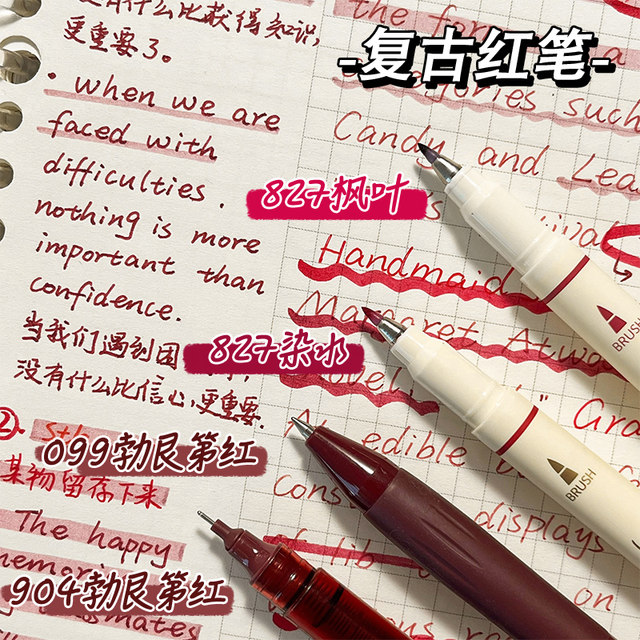 比获得知识,
更重要了。
· when we are
faced with
difficulties.
nothing is more
important than
confidence.
当我们遇到困
没有什么比信心,更重要.
② sth
某物留存下来
The happy
-复古红笔-
the fo
such
Candy and Lea
Handmaid
Margaret Atwo
ovel
Gra
An edible
cons
displays
of lib
on
827枫叶
827染水
099勃艮第红
904勃艮第红
BRUSH
BRUSH